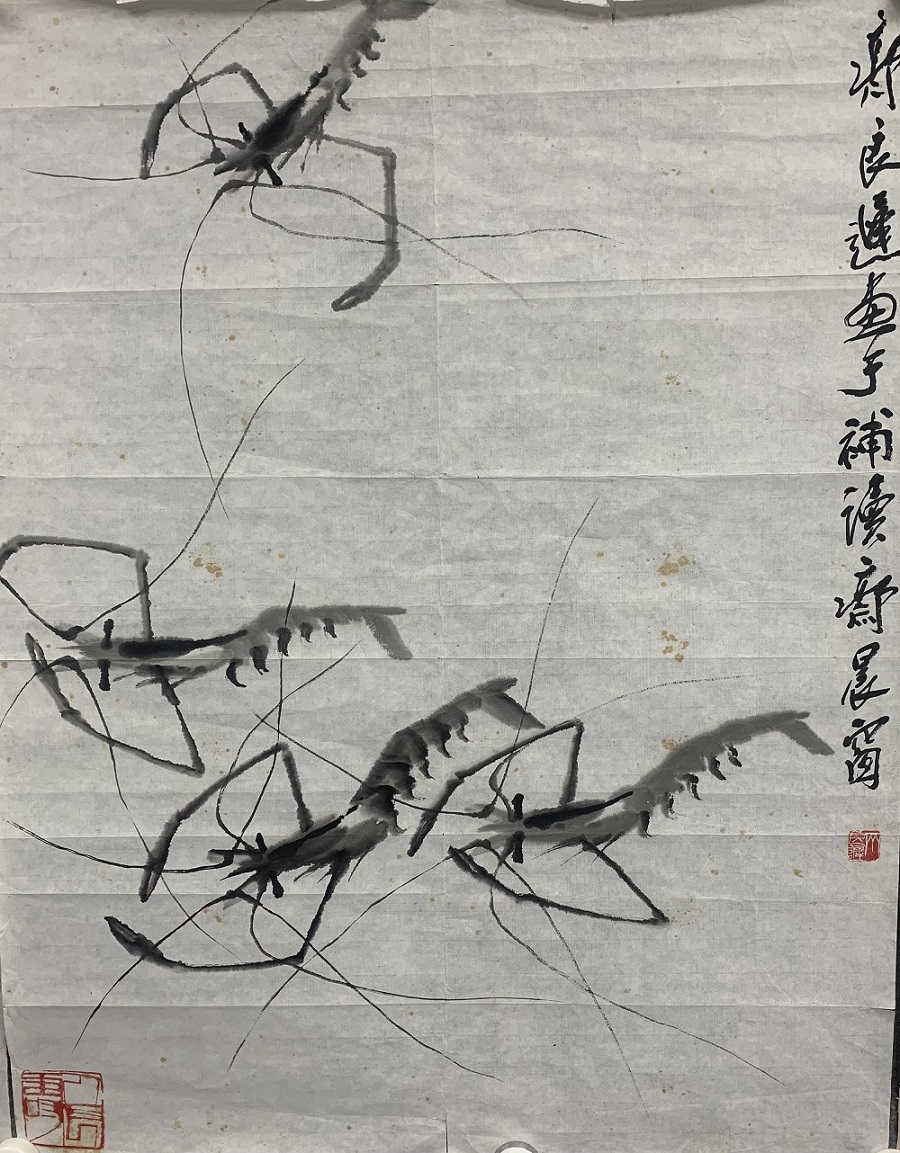 齊良遲画于補讀齋晨窗